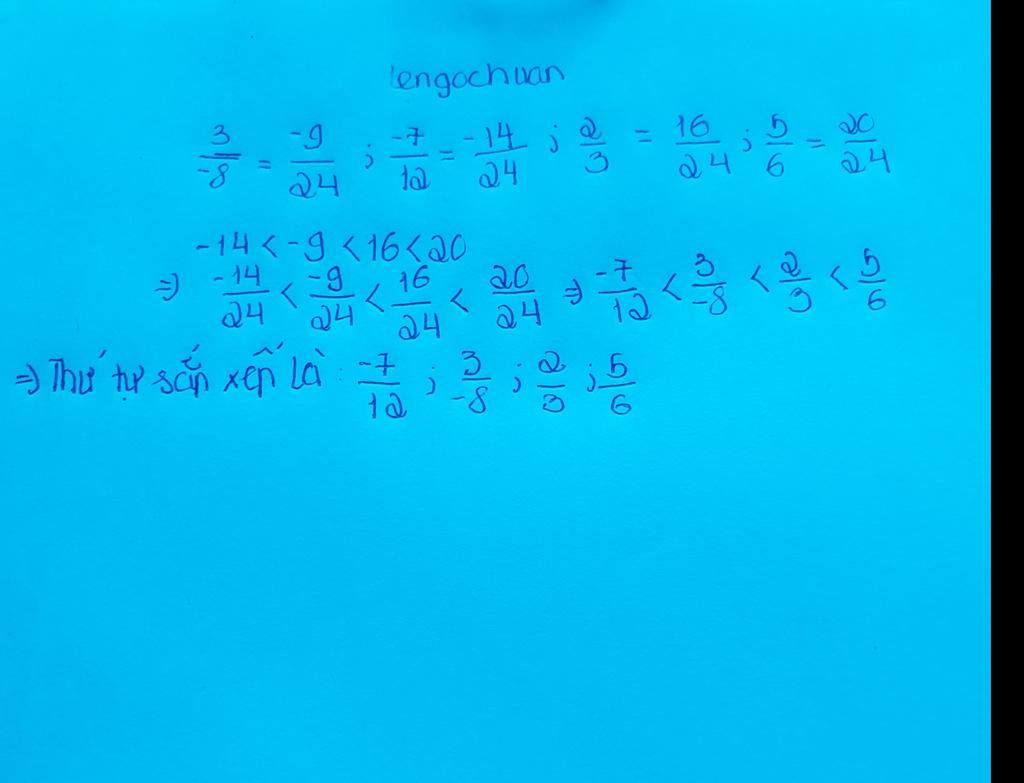 lengochuan
3/-8 = -9/24 ; -7/12 = -14/24 ; 2/3 = 16/24 ; 5/6 = 20/24
-14 < -9 < 16 < 20
=> -14/24 < -9/24 < 16/24 < 20/24 => -7/12 < 3/-8 < 2/3 < 5/6
=> Thứ tự sắp xếp là : -7/12 ; 3/-8 ; 2/3 ; 5/6